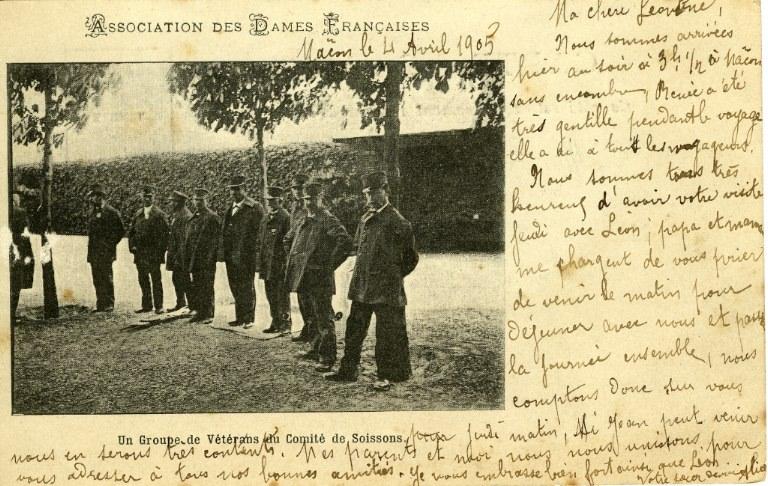 Association des Dames Françaises
Mâcon le 4 Avril 1905
Ma chère Léontine,
Nous sommes arrivées
hier au soir à 3h 1/2 à Mâcon
sans encombre, Renée a été
très gentille pendant le voyage
elle a ri à tout les voyageurs.
Nous sommes très
heureux d'avoir votre visite
jeudi avec Léon; papa et maman
me chargent de vous prier
de venir le matin pour
déjeuner avec nous et passer
la journée ensemble, nous
comptons donc sur vous
Un Groupe de Vétérans du Comité de Soissons.
pour jeudi matin, Si Jean peut venir
nous en serons très contents. Mes parents et moi nous nous unissons pour
vous adresser à tous nos bonnes amitiés. Je vous embrasse bien fort ainsi que Léon
Votre sœur